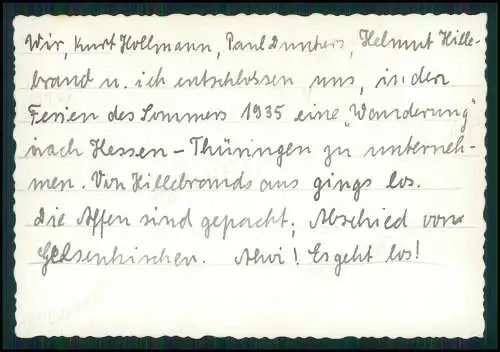 Wir, Kurt Hollmann, Paul Dunkers, Helmut Hille-
brand u. ich entschlossen uns, in den
Ferien des Sommers 1935 eine „Wanderung"
nach Hessen – Thüringen zu unterneh-
men. Von Hillebrands aus gings los.
Die Affen sind gepackt; Abschied von
Gelsenkirchen. Ahoi! Es geht los!